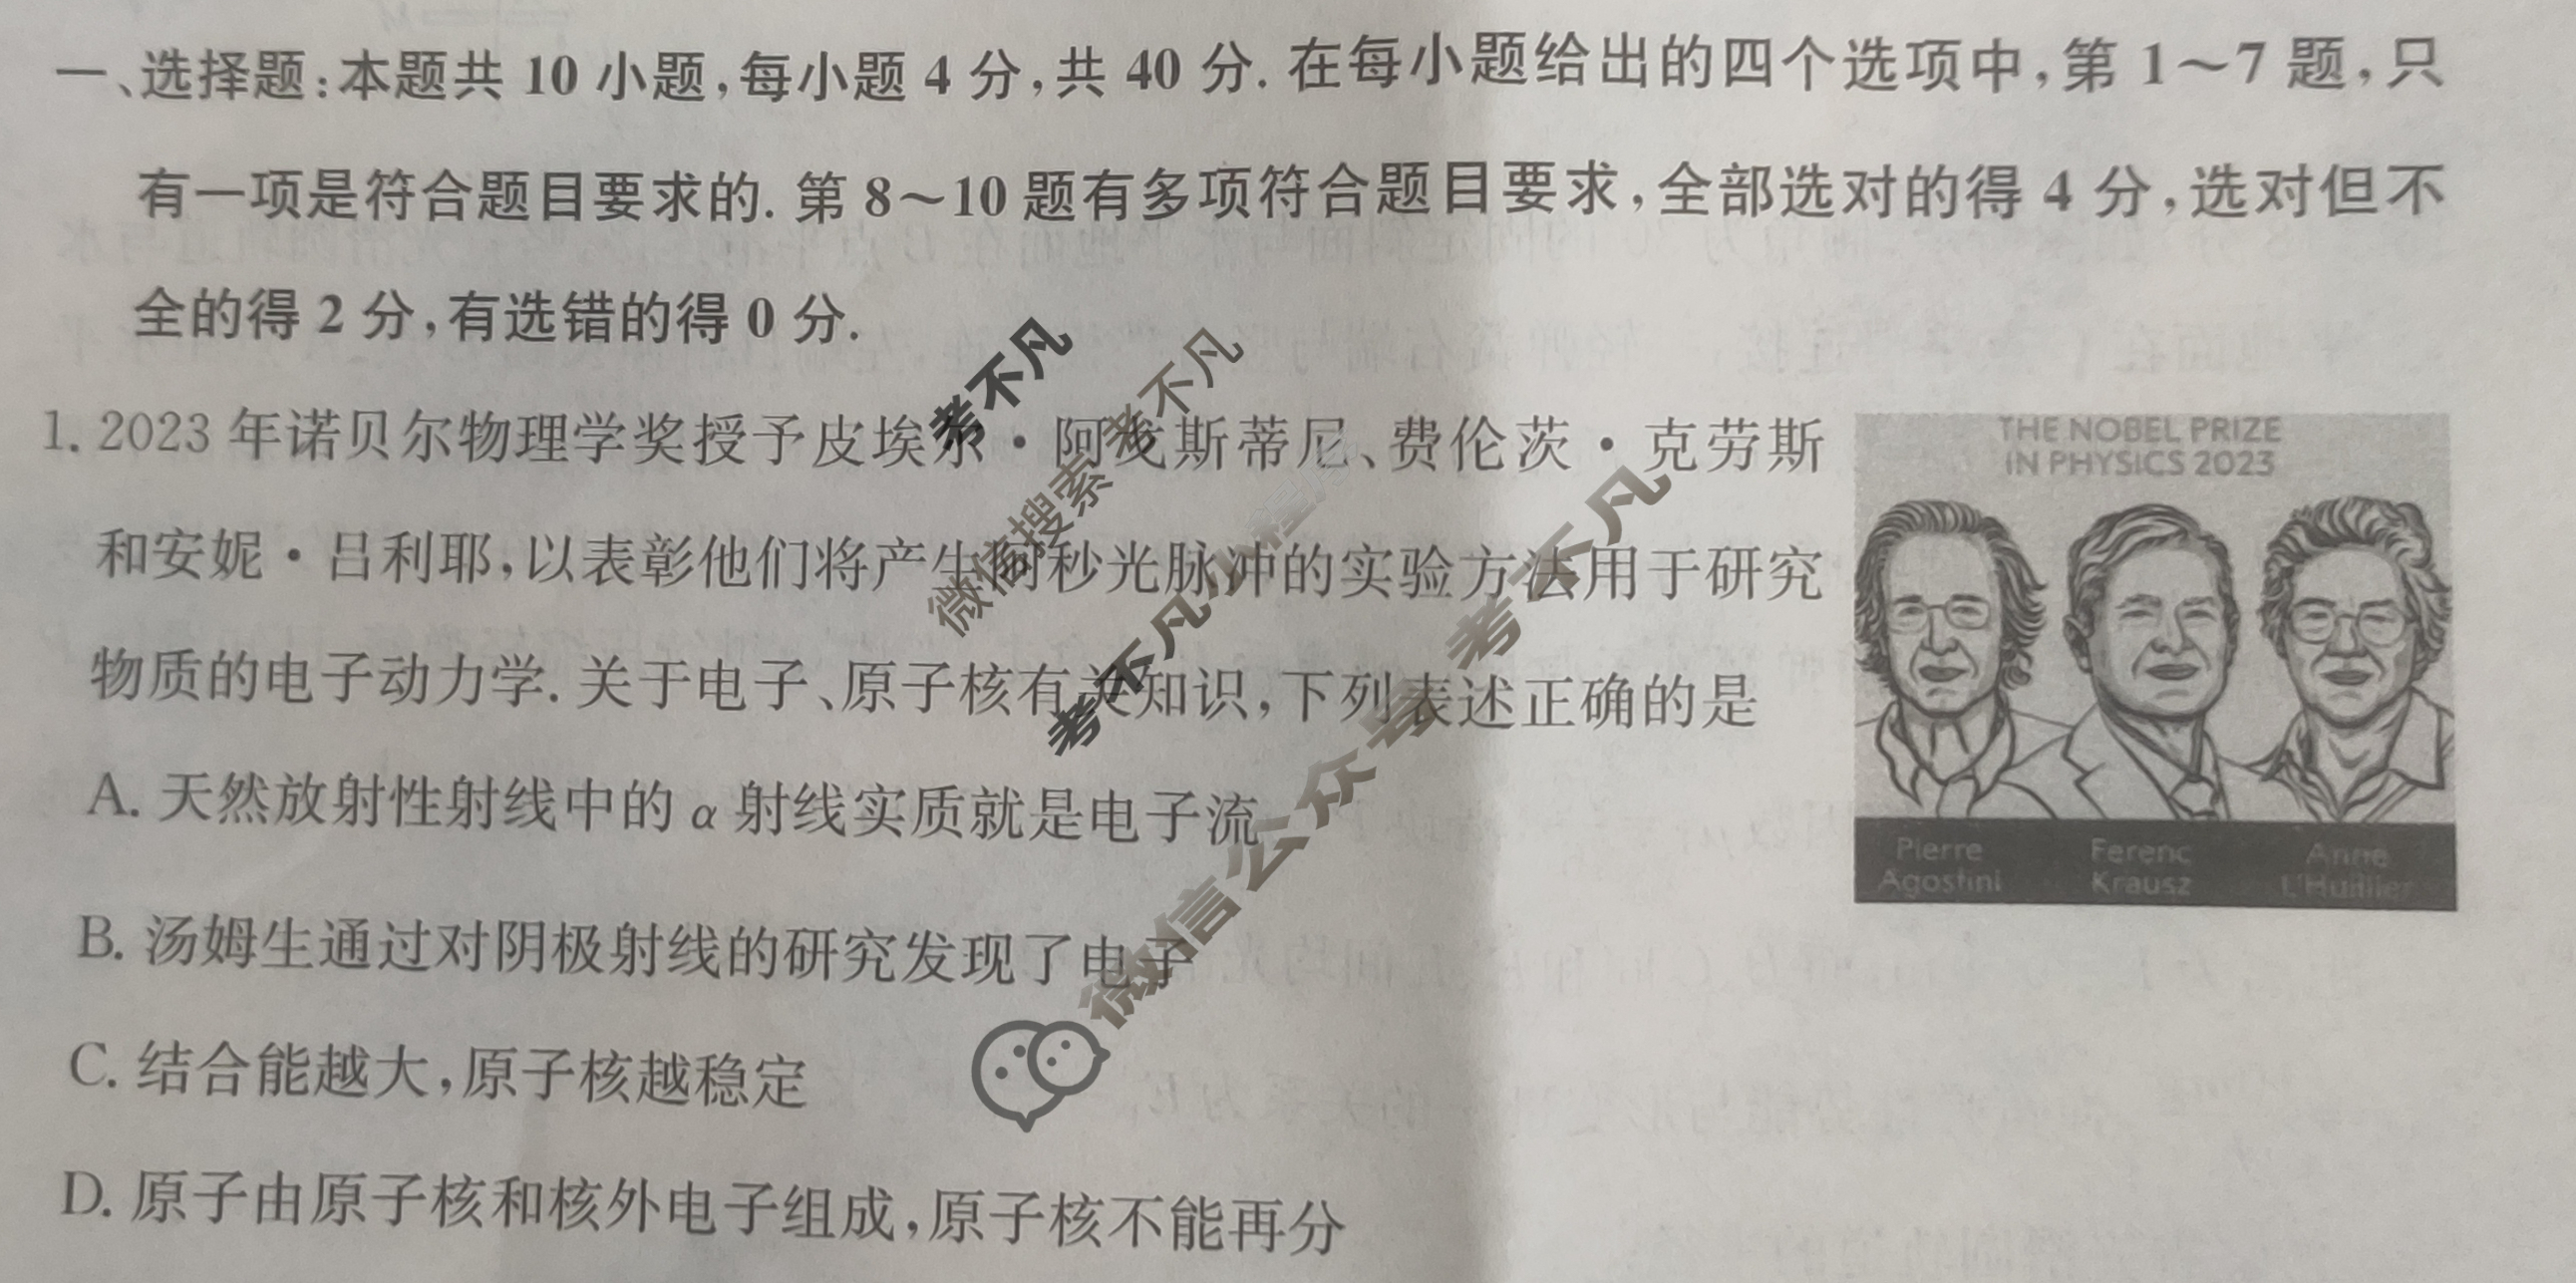 一、选择题:本题共 10 小题,每小题 4 分,共 40 分. 在每小题给出的四个选项中,第 1～7 题,只
有一项是符合题目要求的. 第 8～10 题有多项符合题目要求,全部选对的得 4 分,选对但不
全的得 2 分,有选错的得 0 分.
1. 2023 年诺贝尔物理学奖授予皮埃尔・阿戈斯蒂尼、费伦茨・克劳斯
和安妮・吕利耶,以表彰他们将产生阿秒光脉冲的实验方法用于研究
物质的电子动力学. 关于电子、原子核有关知识,下列表述正确的是
A. 天然放射性射线中的 α 射线实质就是电子流
B. 汤姆生通过对阴极射线的研究发现了电子
C. 结合能越大,原子核越稳定
D. 原子由原子核和核外电子组成,原子核不能再分
THE NOBEL PRIZE
IN PHYSICS 2023
Pierre
Agostini
Ferenc
Krausz
Anne
L'Huillier
考不凡
微信搜索 考不凡
考不凡小程序
微信公众号 考不凡